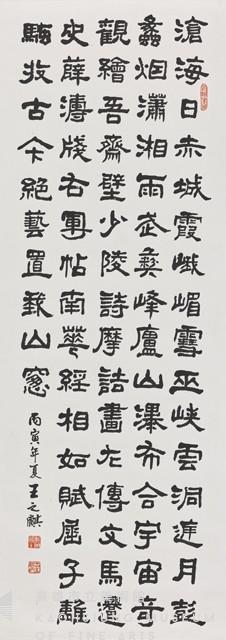 滄海日赤城霞峨嵋雪巫峽雲洞庭月彭
蠡烟瀟湘雨武彝峰廬山瀑布合宇宙奇
觀繪吾齋壁少陵詩摩詰畫左傳文馬遷
史薛濤牋右軍帖南華經相如賦屈子離
騷收古今絕藝置我山窗
丙寅年夏王之麒
高雄市立美術館
KAOHSIUNG MUSEUM
OF FINE ARTS